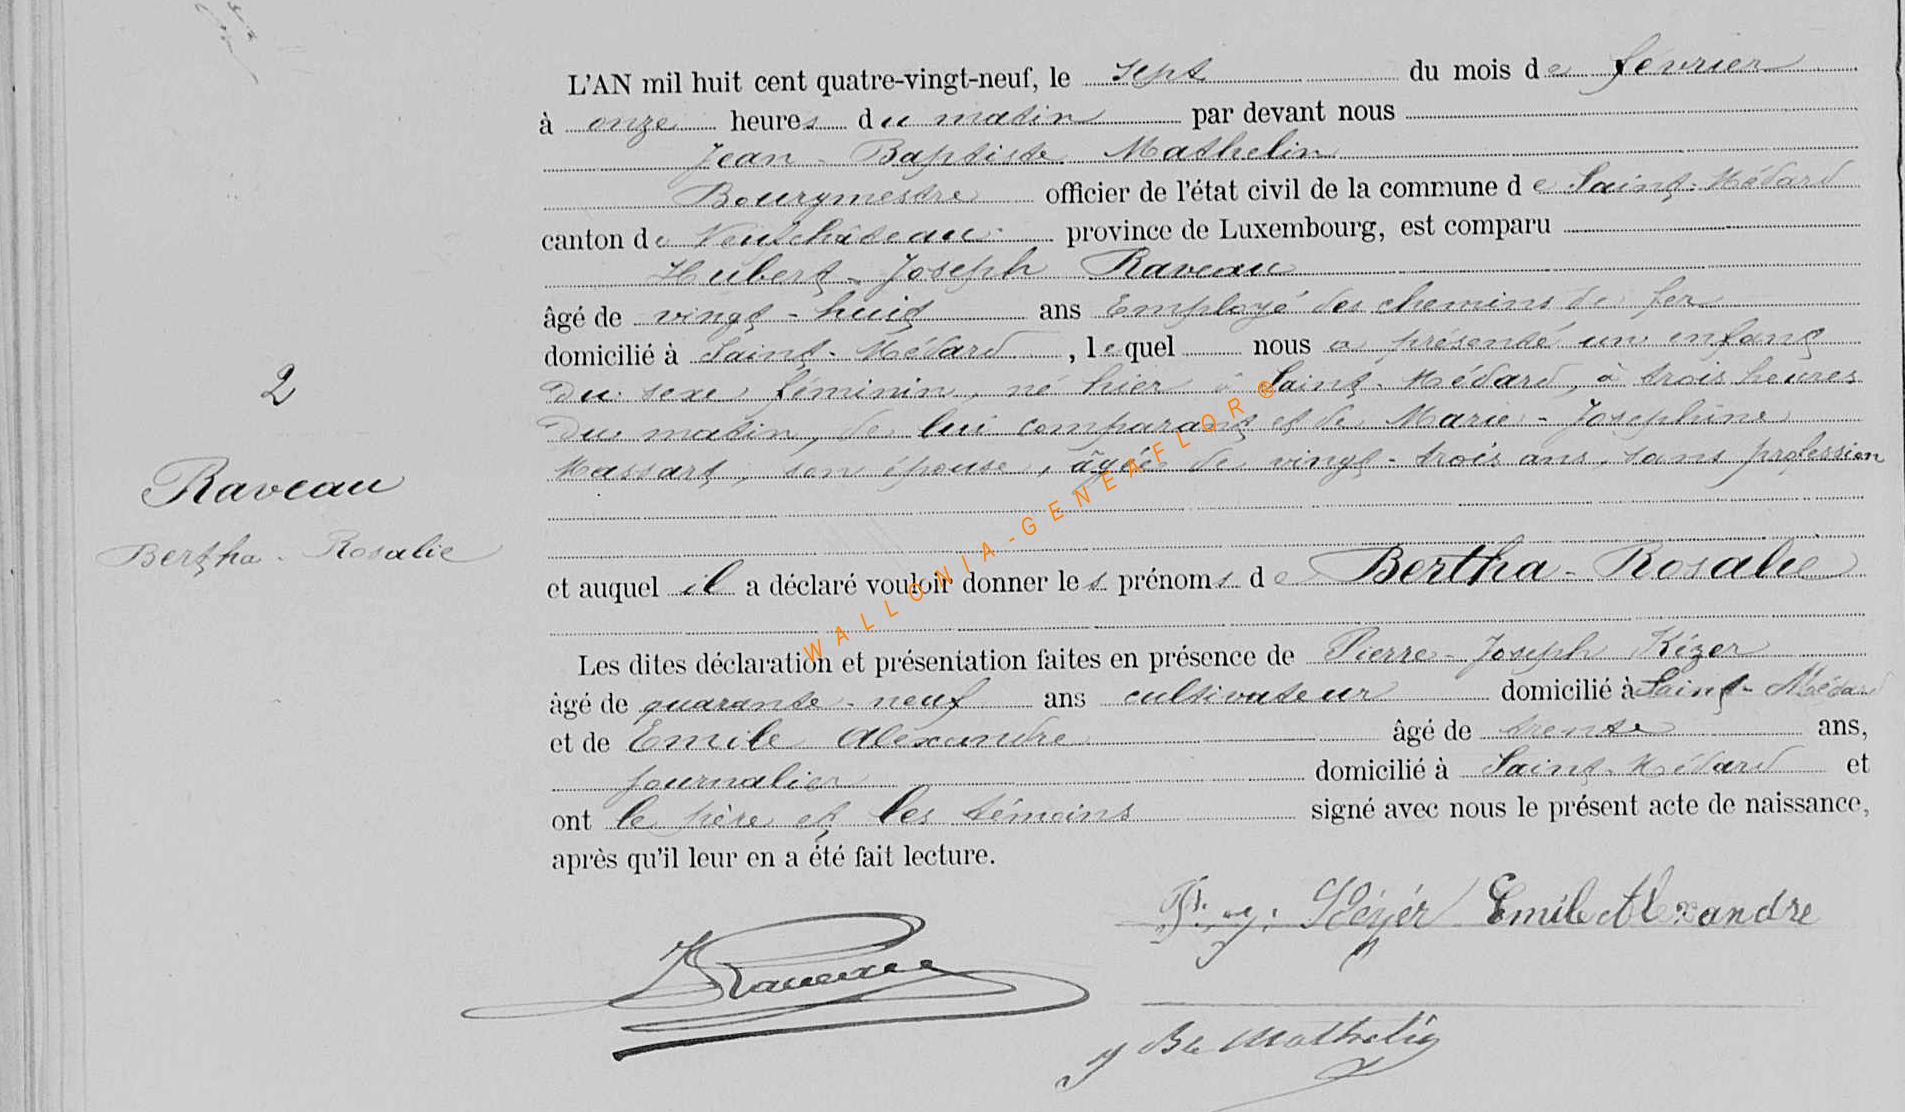 L'AN mil huit cent quatre-vingt-neuf, le sept du mois de février
à onze heures du matin par devant nous
Jean-Baptiste Mathelin
Bourgmestre officier de l'état civil de la commune de Saint-Médard
canton de Neufchâteau province de Luxembourg, est comparu
Hubert-Joseph Raveau
âgé de vingt-huit ans Employé des chemins de fer
domicilié à Saint-Médard, lequel nous a présenté un enfant
du sexe féminin, né hier à Saint-Médard, à trois heures
du matin, de lui comparant et de Marie-Joséphine
Massart, son épouse, âgée de vingt-trois ans, sans profession
2
Raveau
Bertha-Rosalie
et auquel il a déclaré vouloir donner les prénoms de Bertha-Rosalie
Les dites déclaration et présentation faites en présence de Pierre-Joseph Kézer
âgé de quarante-neuf ans cultivateur domicilié à Saint-Médard
et de Emile Alexandre âgé de trente ans,
journalier domicilié à Saint-Médard et
ont le père et les témoins signé avec nous le présent acte de naissance,
après qu'il leur en a été fait lecture.
Emile Alexandre
Raveau
J Bte Mathelin
WALLONIA-GENEAFLOR®